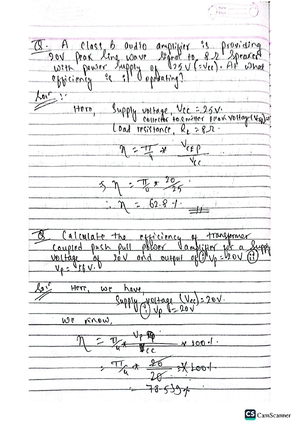 Q. A Class B audio amplifier is providing
20V peak sine wave signal to 8Ω speaker
with power supply of 25V (=Vcc). At what
efficiency is it operating?
Solⁿ:-
Here, Supply voltage, Vcc = 25V.
collector to emitter peak voltage (Vcep)
Load resistance, RL = 8Ω.
η = π/4 * Vcep/Vcc
⇒ η = π/4 * 20/25
∴ η = 62.8 %.
Q Calculate the efficiency of transformer
coupled push pull power amplifier for a supply
voltage of 20V and output of (i) Vp = 20V (ii)
Vp = 16V.
Solⁿ Here, we have,
Supply voltage (Vcc) = 20V.
(i) Vp = 20V
We know,
η = π/4 * Vp/Vcc * 100%
= π/4 * 20/20 * 100%
= 78.539%
CS CamScanner